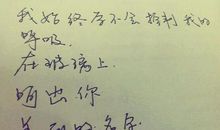 我始终学不会控制我的
呼吸.
在玻璃上.
哈出你
的名字